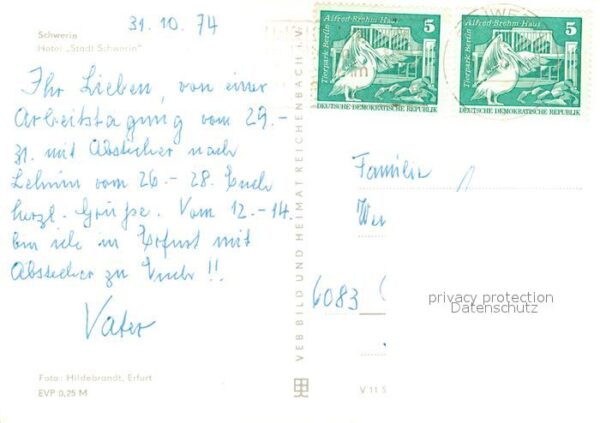 31.10.74
Schwerin
Hotel „Stadt Schwerin“
Ihr Lieben, von einer
Arbeitstagung vom 29.-
31. mit Abstecher nach
Lehnin vom 26.-28. Euch
herzl. Grüße. Vom 12.-14.
bin ich in Erfurt mit
Abstecher zu Euch!!
Vater
Foto: Hildebrandt, Erfurt
EVP 0,25 M
VEB BILD UND HEIMAT REICHENBACH i. V.
Alfred-Brehm-Haus 5
Tierpark Berlin
DEUTSCHE DEMOKRATISCHE REPUBLIK
Alfred-Brehm-Haus 5
Tierpark Berlin
DEUTSCHE DEMOKRATISCHE REPUBLIK
Familie
6083
privacy protection
Datenschutz
V 11 S